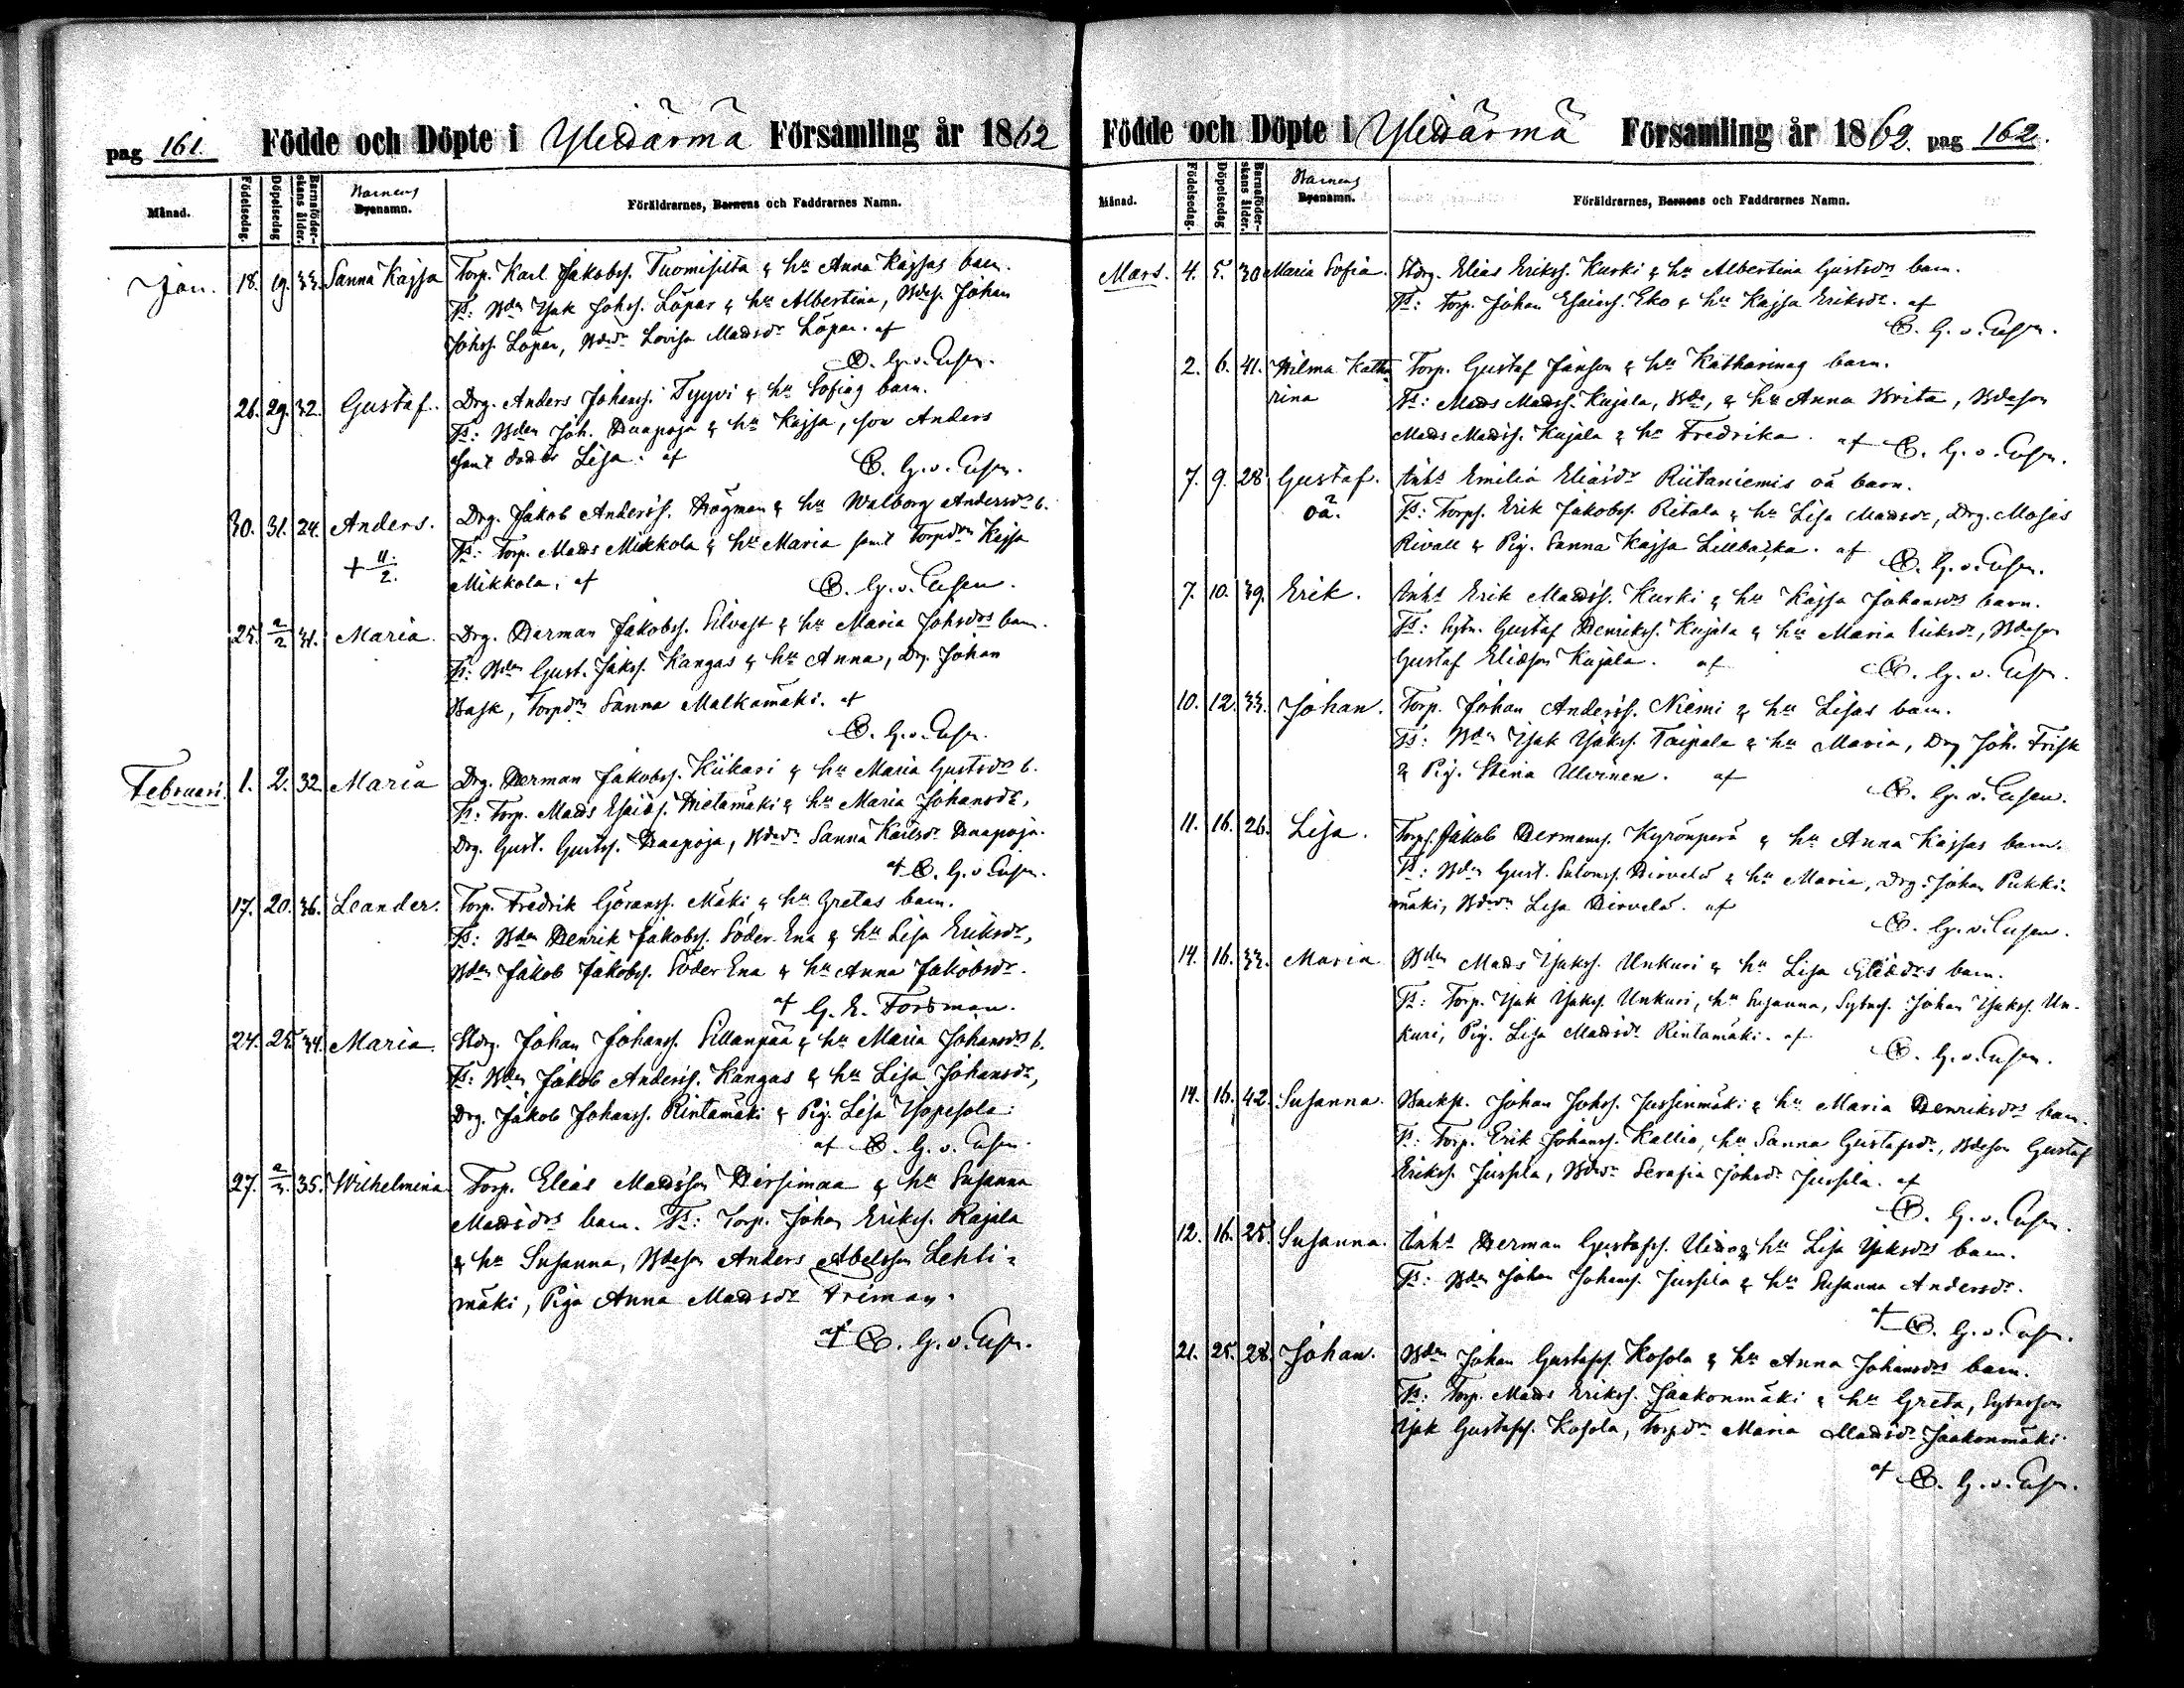 pag 161. Födde och Döpte i Ylihärmä Församling år 1862
Månad. Födelsedag. Döpelsedag Barnaföderskans ålder. Barnens Byanamn. Föräldrarnes, Barnens och Faddrarnes Namn.
Jan. 18. 19. 33. Sanna Kajsa Torp. Karl Jakobss. Tuomisilta & hu Anna Kajsas barn.
Ts: Bdn Isak Johss. Löpar & hu Albertina, Bdes. Johan
Johss. Löpar, Bdedr Lovisa Madsdr Löpar. af
C. G. v. Essen.
26. 29. 32. Gustaf. Drg. Anders Johanss. Tyyvi & hu Sofias barn.
Ts: Bdn Joh. Haapoja & hu Kajsa, son Anders
samt dotter Lisa. af C. G. v. Essen.
30. 31. 24. Anders. Drg. Jakob Anderss. Högman & hu Walborg Andersdrs b.
+ 11/2. Ts: Torp. Mads Mikkola & hu Maria samt Torpdr Kajsa
Mikkola, af C. G. v. Essen.
25. 2/2 31. Maria. Drg. Herman Jakobss. Silvast & hu Maria Johsdrs barn.
Ts: Bdn Gust. Jakss. Kangas & hu Anna, Drg. Johan
Bask, Torpdr Sanna Malkamäki. af
C. G. v. Essen.
Februari. 1. 2. 32 Maria Drg. Herman Jakobss. Kiikari & hu Maria Gustsdrs b.
Ts: Torp. Mads Esaiss. Hietamäki & hu Maria Johansdr,
Drg. Gust. Gustss. Haapoja, Bdedr Sanna Karlsdr Haapoja.
af C. G. v. Essen.
17. 20. 36. Leander. Torp. Fredrik Göranss. Mäki & hu Gretas barn.
Ts: Bdn Henrik Jakobss. Söder Ena & hu Lisa Eriksdr,
Bdn Jakob Jakobss. Söder Ena & hu Anna Jakobsdr.
af G. E. Forsman.
24. 25. 34. Maria. Stdrg. Johan Johanss. Sillanpää & hu Maria Johansdrs b.
Ts: Bdn Jakob Anderss. Kangas & hu Lisa Johansdr,
Drg. Jakob Johanss. Rintamäki & Pig. Lisa Isopesola.
af C. G. v. Essen.
27. 2/3. 35. Wilhelmina Torp. Elias Madsson Hirsimaa & hu Susanna
Madsdrs barn. Ts: Torp. Johan Erikss. Rajala
& hu Susanna, Bdeson Anders Abelsson Lehti-
mäki, Piga Anna Madsdr Friman.
af C. G. v. Essen.
Födde och Döpte i Ylihärmä Församling år 1862. pag 162.
Månad. Födelsedag. Döpelsedag Barnaföderskans ålder. Barnens Byanamn. Föräldrarnes, Barnens och Faddrarnes Namn.
Mars. 4. 5. 30 Maria Sofia. Stdrg. Elias Erikss. Kurki & hu Albertina Gustsdrs barn.
Ts: Torp. Johan Esaiass. Eko & hu Kajsa Eriksdr. af
C. G. v. Essen.
2. 6. 41. Wilma Katha Torp. Gustaf Janson & hu Katharinas barn.
rina Ts: Mads Madss. Kujala, Bde, & hu Anna Brita, Bdeson
Mads Madss. Kujala & hu Fredrika. af C. G. v. Essen.
7. 9. 28 Gustaf. Inhs Emilia Eliasdr Riitaniemis oä barn.
oä. Ts: Torps. Erik Jakobss. Ritala & hu Lisa Madsdr, Drg. Moses
Rivall & Pig. Sanna Kajsa Lillbacka. af C. G. v. Essen.
7. 10. 39. Erik. Inhs Erik Madss. Kurki & hu Kajsa Johansdrs barn.
Ts: Sytn. Gustaf Henrikss. Kujala & hu Maria Eriksdr, Bdeson
Gustaf Eliason Kujala. af C. G. v. Essen.
10. 12. 33. Johan. Torp. Johan Anderss. Niemi & hu Lisas barn.
Ts: Bdn Isak Isakss. Taipale & hu Maria, Drg Joh. Frisk
& Pig. Stina Ulvinen. af C. G. v. Essen.
11. 16. 26. Lisa. Torps. Jakob Hermanss. Kyrönperä & hu Anna Kajsas barn.
Ts: Bdn Gust. Salomss. Hirvelä & hu Maria, Drg. Johan Pukki-
mäki, Bdedr Lisa Hirvelä. af
C. G. v. Essen.
14. 16. 33. Maria Bdn Mads Isakss. Unkuri & hu Lisa Eliædrs barn.
Ts: Torp. Isak Isakss. Unkuri, hu Susanna, Sytns. Johan Isakss. Un-
kuri, Pig. Lisa Madsdr Rintamäki. af
C. G. v. Essen.
14. 16. 42. Susanna. Backst. Johan Johss. Jussinmäki & hu Maria Henriksdrs barn.
Ts: Torp. Erik Johanss. Kallio, hu Sanna Gustafsdr, Bdeson Gustaf
Erikss. Jussila, Bdedr Serafia Johsdr Jussila. af
C. G. v. Essen.
12. 16. 25. Susanna. Inhs Herman Gustafss. & hu Lisa Isaksdrs barn.
Ts: Bdn Johan Johanss. Jussila & hu Susanna Andersdr.
af C. G. v. Essen.
21. 25. 28. Johan. Bdn Johan Gustafss. Kosola & hu Anna Johansdrs barn.
Ts: Torp. Mads Erikss. Jaakonmäki & hu Greta, Sytnsson
Isak Gustafss. Kosola, Torpdr Maria Madsdr Jaakonmäki
af C. G. v. Essen.